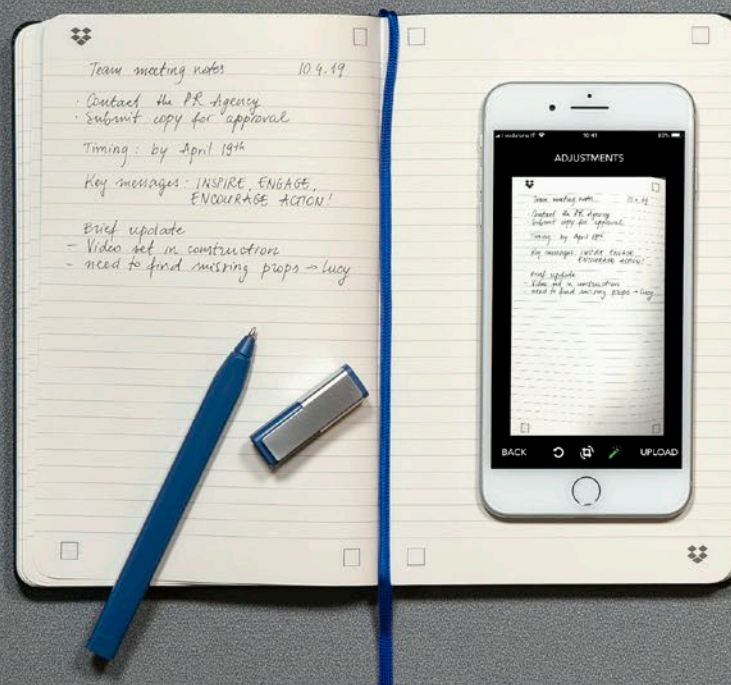 Team meeting notes 10.4.19
· Contact the PR Agency
· Submit copy for approval
Timing: by April 19th
Key messages: INSPIRE, ENGAGE,
ENCOURAGE ACTION!
Brief update
– Video set in construction
– need to find missing props → Lucy
vodafone IT 10:41 82%
ADJUSTMENTS
Team meeting notes 10.4.19
· Contact the PR Agency
· Submit copy for approval
Timing: by April 19th
Key messages: INSPIRE, ENGAGE,
ENCOURAGE ACTION!
Brief update
– Video set in construction
– need to find missing props → Lucy
BACK UPLOAD